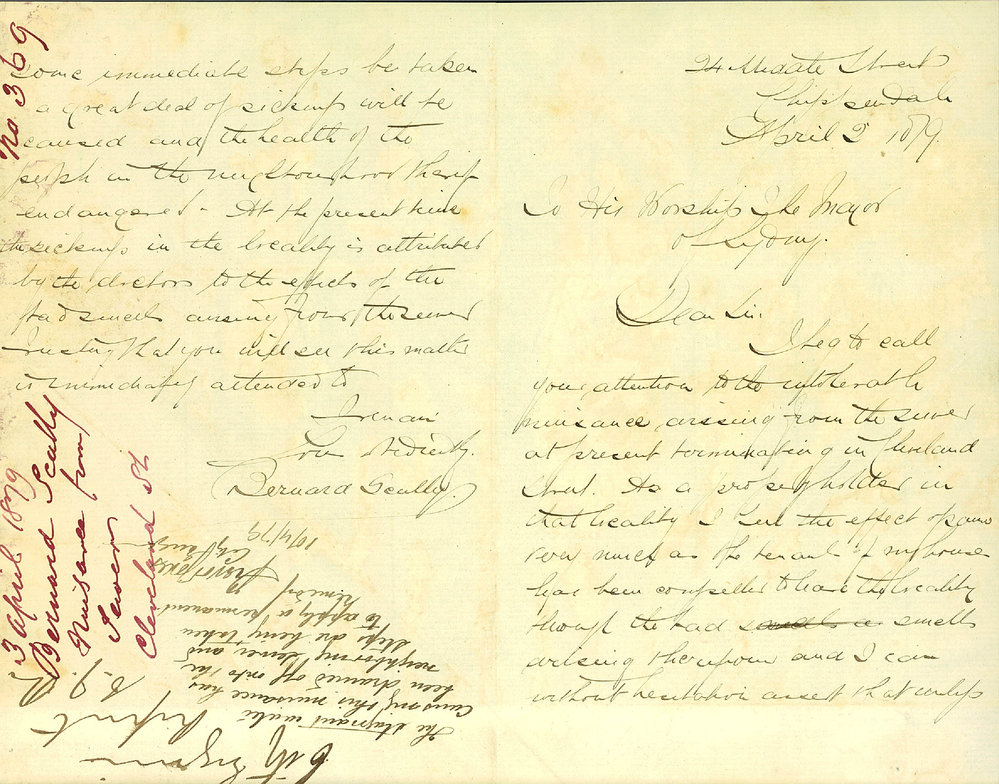 24 Middle Street
Chippendale
April 2 1879.
To His Worship The Mayor
of Sydney.
Dear Sir.
I beg to call
your attention to the intolerable
nuisance arising from the sewer
at present terminating in Cleveland
Street. As a property holder in
that locality I feel the effect of same
very much as the tenant of my house
has been compelled to leave the locality
though the bad smells as smells
arising therefrom and I can
without hesitation assert that unless
some immediate steps be taken
a great deal of sickness will be
caused and the health of the
people in the neighbourhood thereof
endangered - At the present time
the sickness in the locality is attributed
by the doctors to the effects of the
bad smells arising from the sewer
Trusting that you will see this matter
is immediately attended to
I remain
Your Obediently.
Bernard Scully.
No 369
3 April 1879
Bernard Scully
Nuisance from
Sewer
Cleveland St
City Engineer
Report
The stagnant water
causing this nuisance has
been drained off into the
neighboring sewer and
steps are being taken
to apply a permanent
remedy
City Engineer
10/4/79